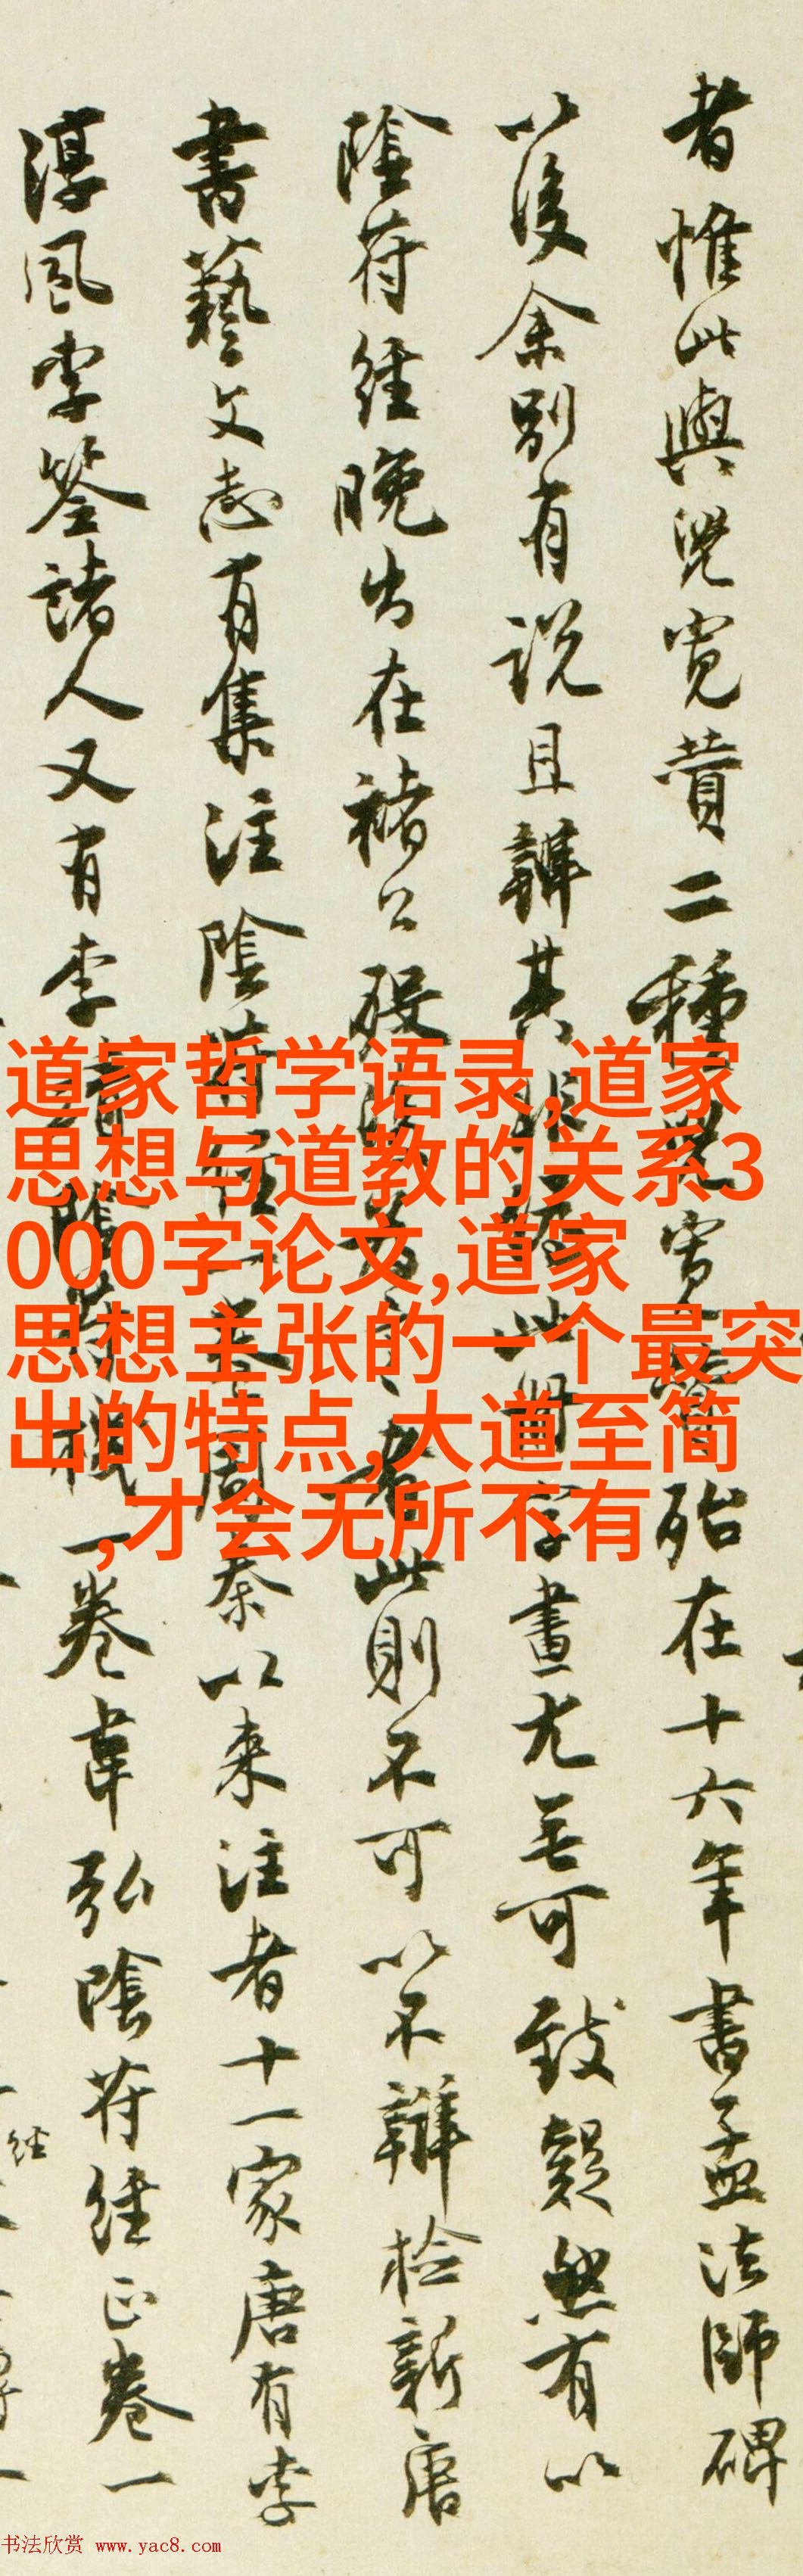 者惟此與児寬贊二種
殆在十六年書孟法師碑
以後余別有説且辯其
字畫尤無可致疑然有以
陰符經晚出在褚公歿
者此則不可以不辯檢新唐
書藝文志有集注陰符經一卷
秦以来注者十一家唐有李
淳風李筌諸人又有李
一卷韋弘陰符經正卷一
經
道家哲学语录,道家
思想与道教的关系3
000字论文,道家
思想主张的一个最突
出的特点,大道至简
,才会无所不有
书法欣赏 www.yac8.com